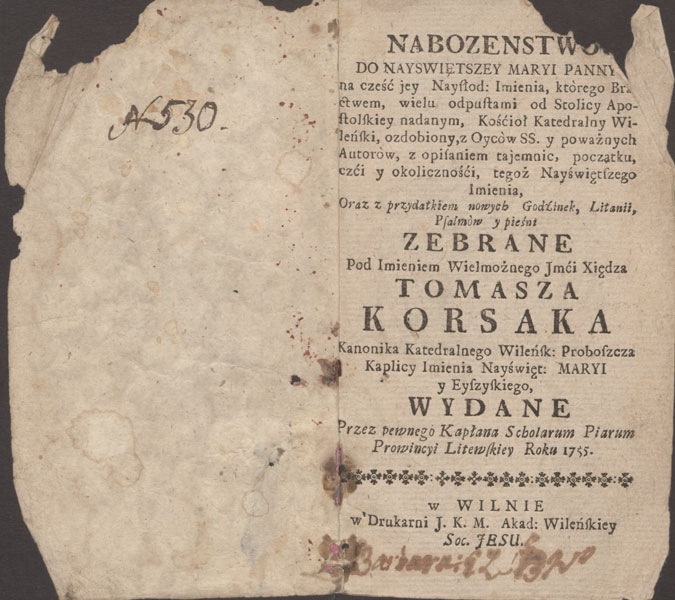 N530.
NABOZENSTWO
DO NAYSWIĘTSZEY MARYI PANNY
na cześć jey Nayſłod: Imienia, którego
ctwem, wielu odpuſtami od Stolicy Apo-
ſtolſkiey nadanym, Kośćioł Katedralny Wi-
leńſki, ozdobiony, z Oyców SS. y poważnych
Autorów, z opiſaniem tajemnic, początku,
czći y okolicznośći, tegoż Nayświętſzego
Imienia,
Oraz z przydatkiem nowych Godźinek, Litanii,
Pſalmòw y pieśni
ZEBRANE
Pod Imieniem Wielmożnego Jmći Xiędza
TOMASZA
KORSAKA
Kanonika Katedralnego Wileńſk: Proboſzcza
Kaplicy Imienia Nayświęt: MARYI
y Eyſzyſkiego,
WYDANE
Przez pewnego Kapłana Scholarum Piarum
Prowincyi Litewſkiey Roku 1755.
w WILNIE
w Drukarni J. K. M. Akad: Wileńſkiey
Soc. JESU.